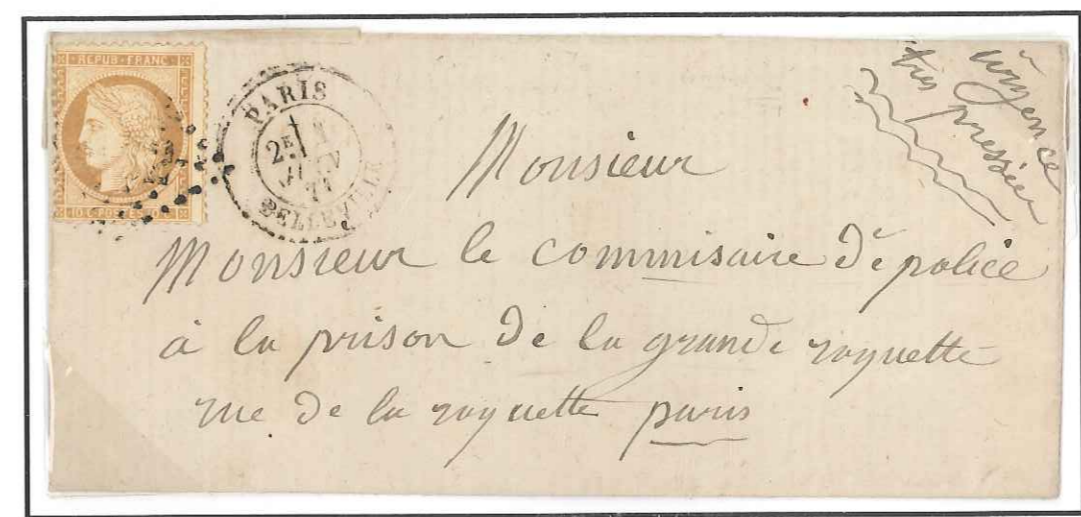 REPUB·FRANC
10 C·POSTES·10 C
PARIS
2E
JUIN
71
BELLEVILLE
urgence
très pressier
Monsieur
Monsieur le commisaire de police
à la prison de la grande roquette
rue de la roquette paris